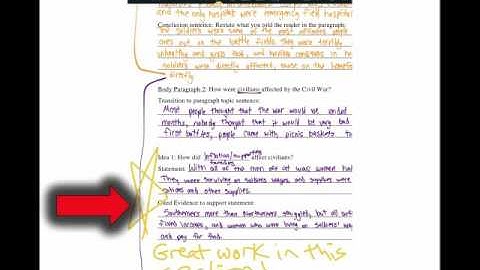 and the only hospital were emergency field hospital
Conclusion sentence: Restate what you told the reader in the paragraph.
The soldiers were some of the most affected people
ones out on the battle field. They were terribly
unhealthy and gross food, and horrible conditions in
soldiers were directly affected,
Body Paragraph 2: How were civilians affected by the Civil War?
Transition to paragraph topic sentence:
Most people thought that the war would be ended
months, nobody thought that it would be very bad
first battles, people came with picnic baskets to
Idea 1: How did inflation/supporting families affect civilians?
Statement: With all of the men at war women had
They were surviving on soldiers wages, and supplies were
and other supplies.
Cited Evidence to support statement:
Southerners more than Northerners struggled, but all
fixed incomes, and women who were living on soldiers'
and pay for food.
Great work in this
section!